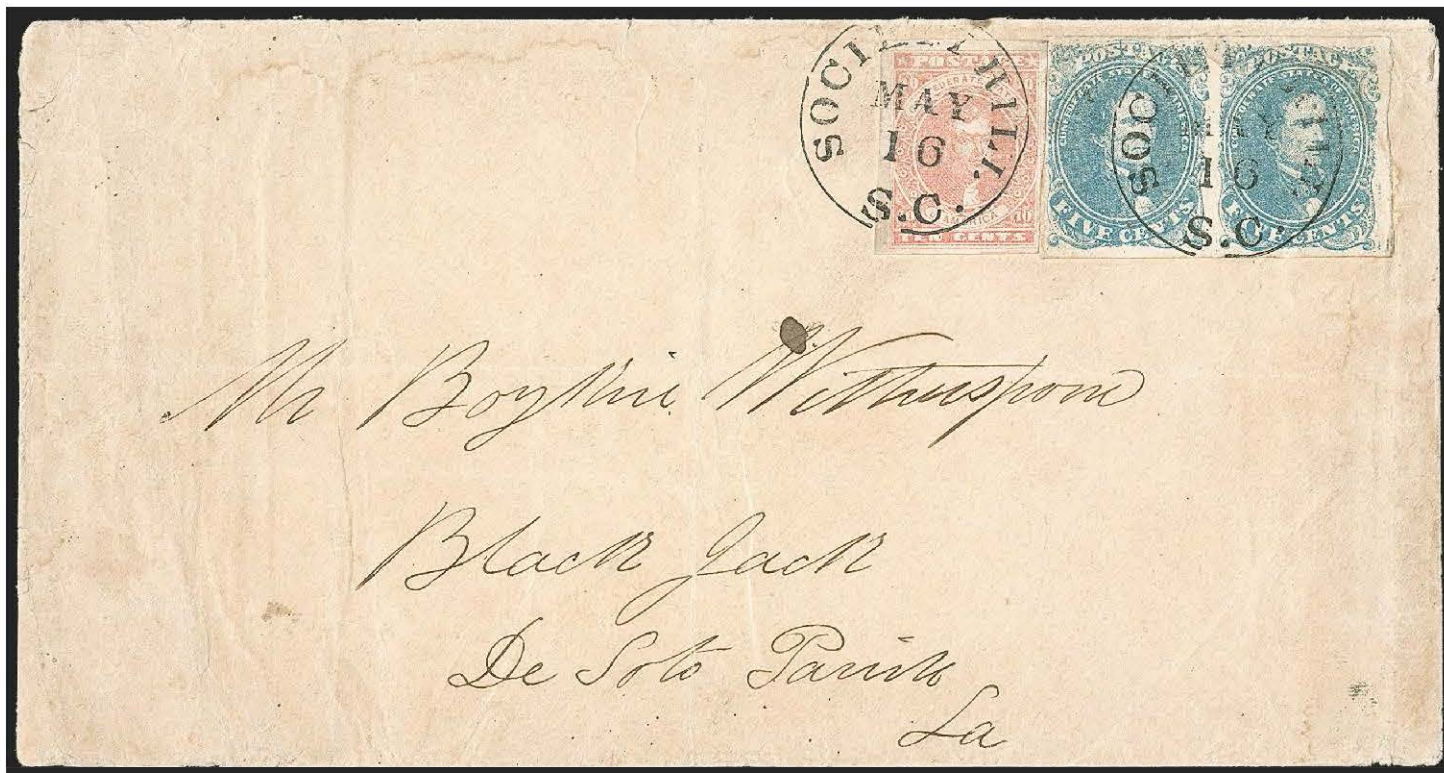 SOCIETY HILL
MAY
16
S.C.
POSTAGE
10
TEN CENTS
SOCIETY HILL
MAY
16
S.C.
POSTAGE
CONFEDERATE STATES OF AMERICA
FIVE CENTS
POSTAGE
CONFEDERATE STATES OF AMERICA
FIVE CENTS
Mr Boykin Witherspoon
Black Jack
De Soto Parish
La